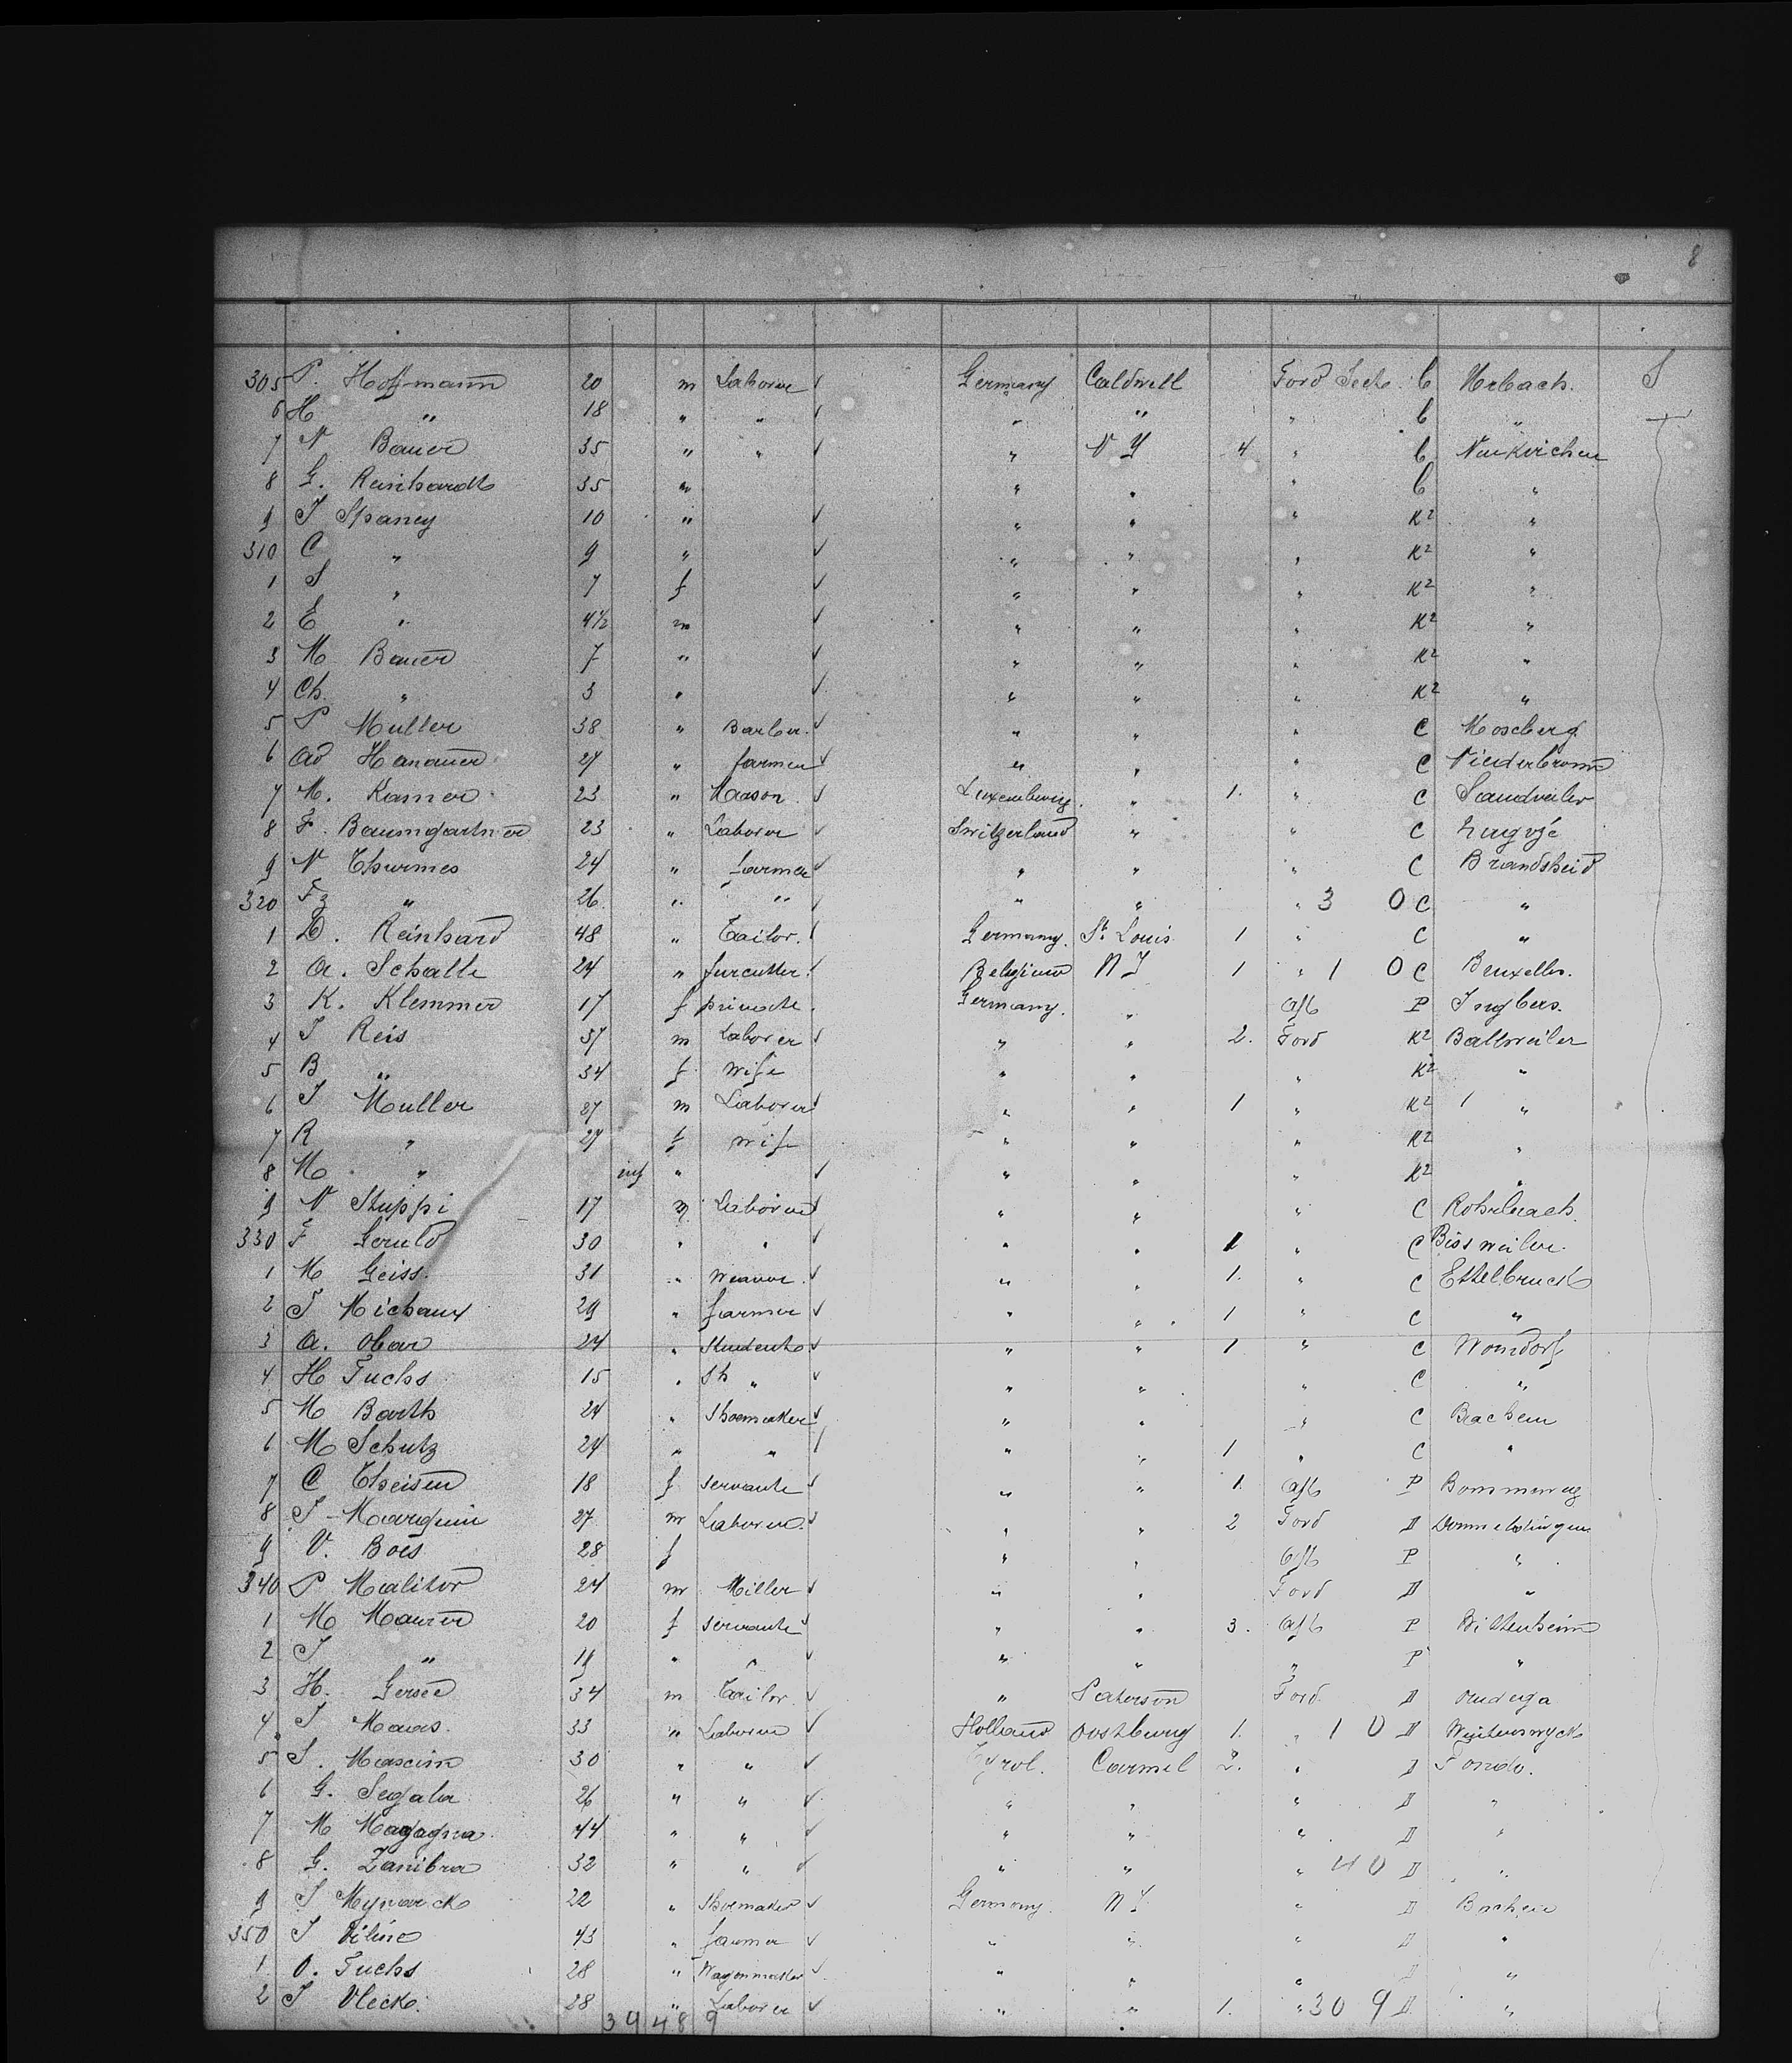 8
305 P. Hoffmann 20 m Laborer ✓ Germany Caldwell Ford Seck C Urbach. S
6 H " 18 " " ✓ " " " C "
7 N Bauer 35 " " ✓ " N Y 4 " C Neukirchen
8 G. Reinhardt 35 " " " " C "
9 J Spaney 10 " ✓ " " " K2 "
310 C " 9 " ✓ " " " K2 "
1 S " 7 f ✓ " " " K2 "
2 E " 4½ m ✓ " " " K2 "
3 M Bauer 7 " ✓ " " " K2 "
4 Ch. " 3 " ✓ " " " K2 "
5 P Muller 38 " Barber. ✓ " " " C Moscberg
6 Ad Hanauer 27 " farmer ✓ " " " C Niederbronn
7 M. Kamer 23 " Mason ✓ Luxemburg. " 1. " C Sandweiler
8 F. Baumgartner 23 " Laborer ✓ Switzerland " " C
9 N Thurmes 24 " Farmer ✓ " " " C Brandsheid
320 Fz " 26. " " ✓ " " " 3 0 C "
1 D. Reinhard 48 " Tailor. ✓ Germany. St. Louis 1 " C "
2 A. Schalle 24 " furcutter. ✓ Belgium N Y 1 " 1 0 C Bruxelles.
3 K. Klemmer 17 f private. Germany. " Aft P Ingbers.
4 J Reis 37 m Laborer ✓ " " 2. Ford K2 Ballweiler
5 B " 34 f Wife " " " K2 "
6 J Muller 27 m Laborer ✓ " " 1 " K2 1 "
7 R " 27 f Wife " " " K2 "
8 M " inf " ✓ " " " K2 "
9 N Stuppi 17 m Laborer ✓ " " " C Rohrbach.
330 F Geruld 30 " " ✓ " " 1 " C Bissweiler.
1 M Geiss. 31 " Weaver. ✓ " " 1. " C Ettelbruck
2 J Michaux 29 " farmer ✓ " " 1 " C "
3 A. Obar 24 " Student ✓ " " 1 " C Womdorf
4 H Fuchs 15 " St " ✓ " " " C "
5 M Barth 24 " Shoemaker ✓ " " " C Bachem
6 M Schutz 24 " " ✓ " " 1 " C "
7 C Theisen 18 f servante ✓ " " 1. Aft P
8 J Marquin 27 m Laborer. ✓ " " 2 Ford D
9 V. Boes 28 f " " Aft P "
340 P Malitor 24 m Miller ✓ " " Ford D "
1 M Maurer 20 f servante ✓ " " 3. Aft P Wittenheim
2 J " 19 " " ✓ " " " P "
3 H. Gersee 34 m Tailor. ✓ " Paterson Ford. D
4 J Maas. 33 " Laborer ✓ Holland Oostburg 1. " 1 0 D Winterswyck
5 S. Mascim 30 " " ✓ Tyrol. Carmel 2. " D Fondo.
6 G. Segala 26 " " ✓ " " " D "
7 M Magagna 44 " " ✓ " " " D "
8 G. Zanibra 32 " " ✓ " " " 4 0 D "
9 J Mynarck 22 " Shoemaker ✓ Germany. N Y " D
350 J 43 " farmer ✓ " " " D "
1 O. Fuchs 28 " Wagonmaker ✓ " " " D "
2 J Vleck. 28 " Laborer ✓ " " 1. " 30 9 D "
39 48 9